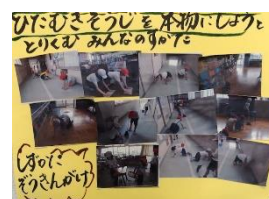 ひたむきそうじを本物にしようと
とりくむ みんなのすがた
ぞうきんがけ